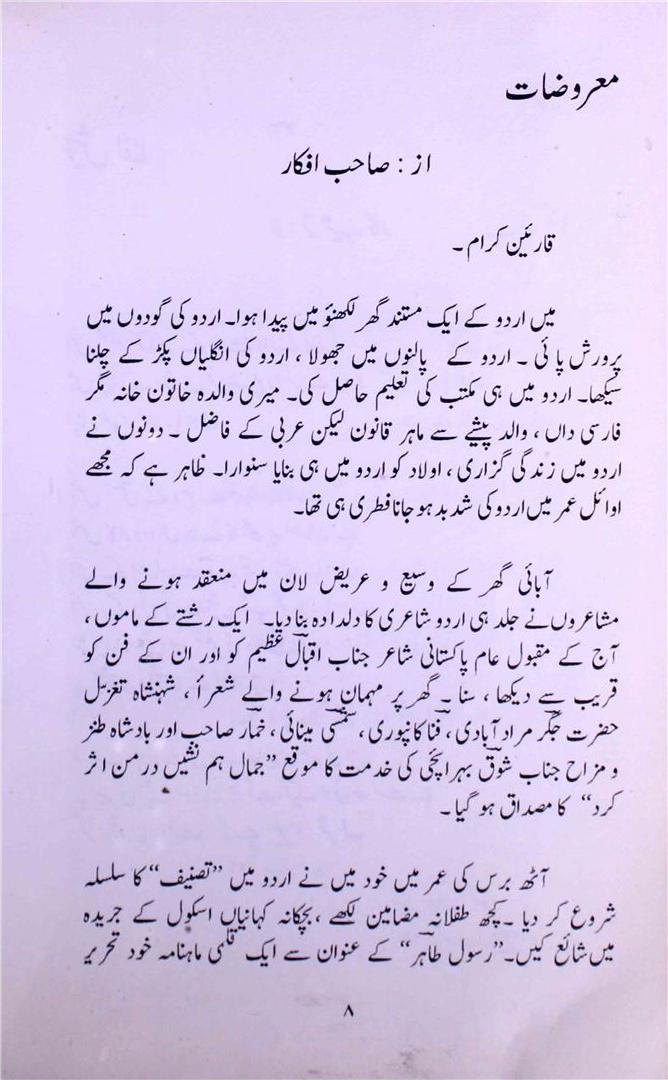 معروضات
از : صاحب افکار
قارئین کرام ۔
میں اردو کے ایک مستند گھر لکھنؤ میں پیدا ہوا۔ اردو کی گودوں میں
پرورش پائی ۔ اردو کے پالنوں میں جھولا ، اردو کی انگلیاں پکڑ کے چلنا
سیکھا۔ اردو میں ہی مکتب کی تعلیم حاصل کی۔ میری والدہ خاتون خانہ مگر
فارسی داں ، والد پیشے سے ماہر قانون لیکن عربی کے فاضل ۔ دونوں نے
اردو میں زندگی گزاری ، اولاد کو اردو میں ہی بنایا سنوارا۔ ظاہر ہے کہ مجھے
اوائل عمر میں اردو کی شدبد ہو جانا فطری ہی تھا۔
آبائی گھر کے وسیع و عریض لان میں منعقد ہونے والے
مشاعروں نے جلد ہی اردو شاعری کا دلدادہ بنا دیا۔ ایک رشتے کے ماموں ،
آج کے مقبول عام پاکستانی شاعر جناب اقبال عظیم کو اور ان کے فن کو
قریب سے دیکھا ، سنا ۔ گھر پر مہمان ہونے والے شعرأ ، شہنشاہ تغزّل
حضرت جگر مراد آبادی ، فنا کانپوری ، شمسی مینائی ، خمار صاحب اور بادشاہ طنز
و مزاح جناب شوق بہرائچی کی خدمت کا موقع ”جمال ہم نشیں در من اثر
کرد“ کا مصداق ہو گیا ۔
آٹھ برس کی عمر میں خود میں نے اردو میں ”تصنیف“ کا سلسلہ
شروع کر دیا ۔ کچھ طفلانہ مضامین لکھے ، بچکانہ کہانیاں اسکول کے جریدہ
میں شائع کیں۔ ”رسول طاہر“ کے عنوان سے ایک قلمی ماہنامہ خود تحریر
۸